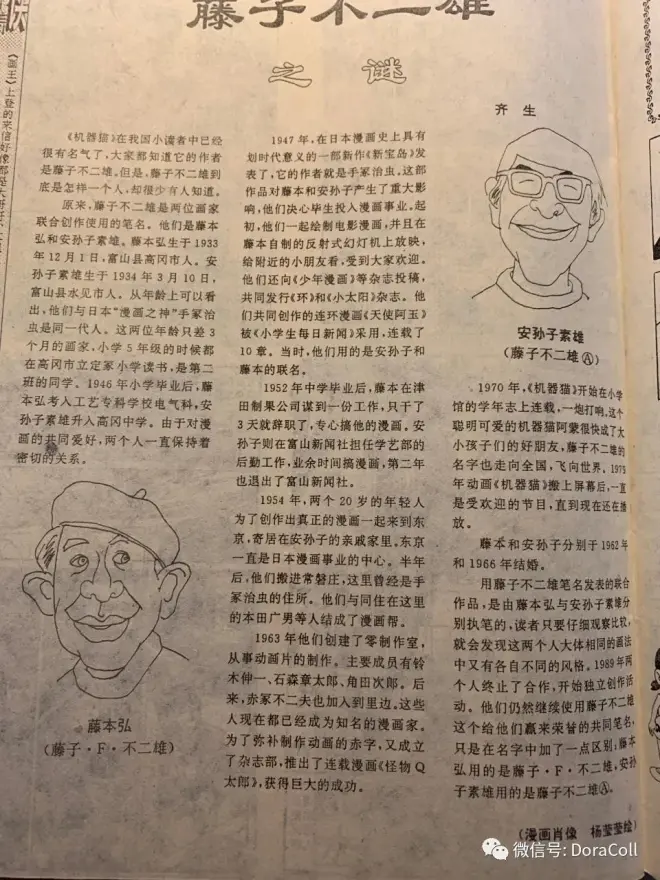 藤子不二雄
之谜
齐 生
《画王》上登的来信好像都是大哥哥大
《机器猫》在我国小读者中已经
很有名气了,大家都知道它的作者
是藤子不二雄。但是,藤子不二雄到
底是怎样一个人,却很少有人知道。
原来,藤子不二雄是两位画家
联合创作使用的笔名。他们是藤本
弘和安孙子素雄。藤本弘生于1933
年12月1日,富山县高冈市人。安
孙子素雄生于1934年3月10日,
富山县水见市人。从年龄上可以看
出,他们与日本“漫画之神”手冢治
虫是同一代人。这两位年龄只差3
个月的画家,小学5年级的时候都
在高冈市立定冢小学读书,是第二
班的同学。1946年小学毕业后,藤
本弘考入工艺专科学校电气科,安
孙子素雄升入高冈中学。由于对漫
画的共同爱好,两个人一直保持着
密切的关系。
藤本弘
(藤子·F·不二雄)
1947年,在日本漫画史上具有
划时代意义的一部新作《新宝岛》发
表了,它的作者就是手冢治虫。这部
作品对藤本和安孙子产生了重大影
响,他们决心毕生投入漫画事业。起
初,他们一起绘制电影漫画,并且在
藤本自制的反射式幻灯机上放映,
给附近的小朋友看,受到大家欢迎。
他们还向《少年漫画》等杂志投稿,
共同发行《环》和《小太阳》杂志。他
们共同创作的连环漫画《天使阿玉》
被《小学生每日新闻》采用,连载了
10章。当时,他们用的是安孙子和
藤本的联名。
1952年中学毕业后,藤本在津
田制果公司谋到一份工作,只干了
3天就辞职了,专心搞他的漫画。安
孙子则在富山新闻社担任学艺部的
后勤工作,业余时间搞漫画,第二年
也退出了富山新闻社。
1954年,两个20岁的年轻人
为了创作出真正的漫画一起来到东
京,寄居在安孙子的亲戚家里。东京
一直是日本漫画事业的中心。半年
后,他们搬进常磐庄,这里曾经是手
冢治虫的住所。他们与同住在这里
的本田广男等人结成了漫画帮。
1963年他们创建了零制作室,
从事动画片的制作。主要成员有铃
木伸一、石森章太郎、角田次郎。后
来,赤冢不二夫也加入到里边。这些
人现在都已经成为知名的漫画家。
为了弥补制作动画的赤字,又成立
了杂志部,推出了连载漫画《怪物Q
太郎》,获得巨大的成功。
安孙子素雄
(藤子不二雄Ⓐ)
1970年,《机器猫》开始在小学
馆的学年志上连载,一炮打响。这个
聪明可爱的机器猫阿蒙很快成了大
小孩子们的好朋友,藤子不二雄的
名字也走向全国,飞向世界。1979
年动画《机器猫》搬上屏幕后,一直
是受欢迎的节目,直到现在还在播
放。
藤本和安孙子分别于1962年
和1966年结婚。
用藤子不二雄笔名发表的联合
作品,是由藤本弘与安孙子素雄分
别执笔的,读者只要仔细观察比较,
就会发现这两个人大体相同的画法
中又有各自不同的风格。1989年两
个人终止了合作,开始独立创作活
动。他们仍然继续使用藤子不二雄
这个给他们赢来荣誉的共同笔名,
只是在名字中加了一点区别:藤本
弘用的是藤子·F·不二雄,安孙
子素雄用的是藤子不二雄Ⓐ。
(漫画肖像 杨莹莹绘)
微信号: DoraColl